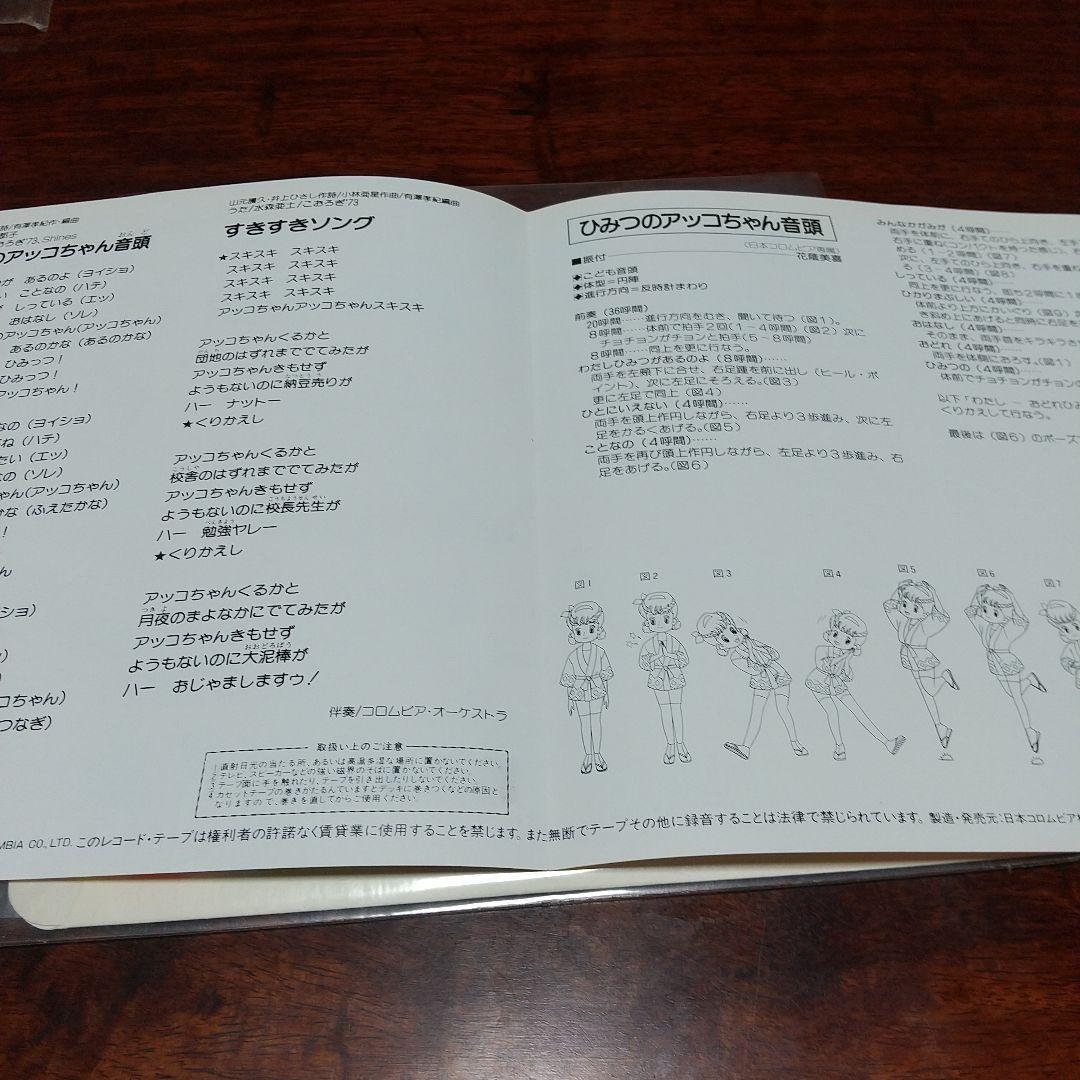 詩/有澤孝紀作・編曲
おろぎ'73, Shines
のアッコちゃん音頭
おんど
が あるのよ(ヨイショ)
い ことなの(ハテ)
が しっている(エッ)
おはなし(ソレ)
のアッコちゃん(アッコちゃん)
あるのかな(あるのかな)
ひみっつ!
ひみっつ!
アッコちゃん!
なの(ヨイショ)
ね(ハテ)
たい(エッ)
の(ソレ)
ゃん(アッコちゃん)
かな(ふえたかな)
!
ん
ショ)
コちゃん)
つなぎ)
山元護久・井上ひさし作詩/小林亜星作曲/有澤孝紀編曲
うた/水森亜土/こおろぎ'73
すきすきソング
★スキスキ スキスキ
スキスキ スキスキ
スキスキ スキスキ
スキスキ スキスキ
アッコちゃんアッコちゃんスキスキ
アッコちゃんくるかと
団地のはずれまででてみたが
アッコちゃんきもせず
ようもないのに納豆売りが
ハー ナットー
★くりかえし
アッコちゃんくるかと
校舎のはずれまででてみたが
アッコちゃんきもせず
ようもないのに校長先生が
ハー 勉強ヤレー
★くりかえし
アッコちゃんくるかと
月夜のまよなかにでてみたが
アッコちゃんきもせず
ようもないのに大泥棒が
ハー おじゃましますゥ!
伴奏/コロムビア・オーケストラ
取扱い上のご注意
1 直射日光の当たる所、あるいは高温多湿な場所に置かないでください。
2 テレビ、スピーカーなどの強い磁界のそばに置かないでください。
3 テープ面に手を触れたり、テープを引き出したりしないでください。
4 カセットテープの巻きがたるんでいますとデッキに巻きつくなどの原因と
なりますので、巻きを直してからご使用ください。
ひみつのアッコちゃん音頭
(日本コロムビア専属)
■振付 花蔭美嘉
◆こども音頭
◆体型=円陣
◆進行方向=反時計まわり
前奏(36呼間)
20呼間……進行方向をむき、聞いて待つ(図1)。
8呼間……体前で拍手2回(1-4呼間)(図2)次に
チョチョンがチョンと拍手(5-8呼間)
8呼間……同上を更に行なう。
わたしひみつがあるのよ(8呼間)……
両手を左頬下に合せ、右足踵を前に出し(ヒール・ポ
イント)、次に左足にそろえる。(図3)
更に左足で同上(図4)
ひとにいえない(4呼間)……
両手を頭上作円しながら、右足より3歩進み、次に左
足をかるくあげる。(図5)
ことなの(4呼間)……
両手を再び頭上作円しながら、左足より3歩進み、右
足をあげる。(図6)
みんなかがみが(4呼間)……
両手を体前に、右手てのひら上向き、左手
右手に重ね(コンパクトを持った感じ)、
める。(1-2呼間)(図7)
次に、左手てのひら上向き、右手を重ね
る(3-4呼間)(図8)
しっている(4呼間)
ひかりまぶしい(4呼間)
体前より上方にかいぐり(図9)
き斜め上にあげると同時に右足を
おはなし(4呼間)……
そのまま、両手首をキラキラさせ
おどれ(4呼間)……
両手を体側におろす。(図1)
ひみつの(4呼間)……
体前でチョチョンがチョンの
以下「わたし - おどれひみ
くりかえして行なう。
最後は(図6)のポーズで
図1
図2
図3
図4
図5
図6
図7
MBIA CO., LTD. このレコード・テープは権利者の許諾なく賃貸業に使用することを禁じます。また無断でテープその他に録音することは法律で禁じられています。 製造・発売元:日本コロムビア